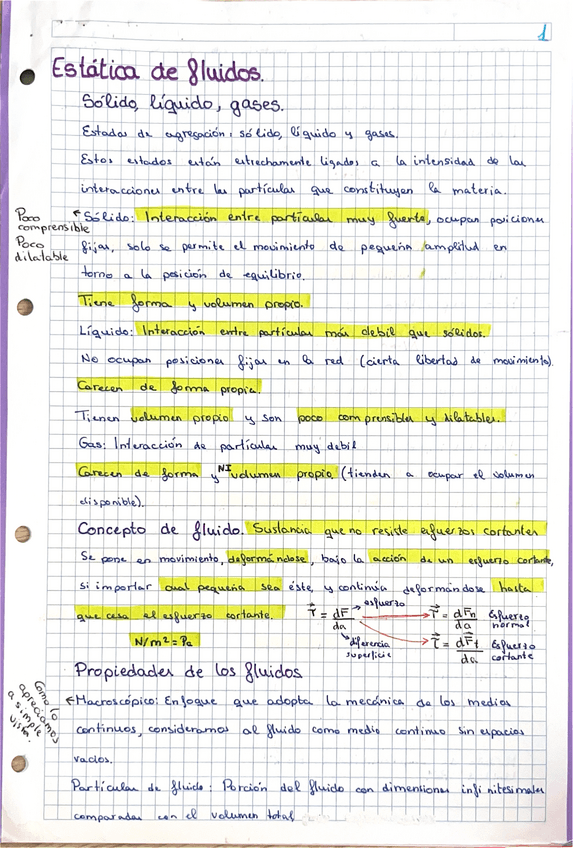 1
Estática de fluidos.
Sólido, líquido, gases.
Estados de agregación: sólido, líquido y gases.
Estos estados están estrechamente ligados a la intensidad de las
interacciones entre las partículas que constituyen la materia.
Poco comprensible
Poco dilatable
← Sólido: Interacción entre partículas muy fuerte, ocupan posiciones
fijas, solo se permite el movimiento de pequeña amplitud en
torno a la posición de equilibrio.
Tiene forma y volumen propio.
Líquido: Interacción entre partículas más debil que sólidos.
No ocupan posiciones fijas en la red (cierta libertad de movimiento).
Carecen de forma propia.
Tienen volumen propio y son poco comprensibles y dilatables.
Gas: Interacción de partículas muy debil
Carecen de forma y NI volumen propio (tienden a ocupar el volumen
disponible).
Concepto de fluido. Sustancia que no resiste esfuerzos cortantes
Se pone en movimiento, deformándose, bajo la acción de un esfuerzo cortante,
si importar cual pequeña sea éste, y continúa deformándose hasta
que cesa el esfuerzo cortante.
N/m² = Pa
τ⃗ = dF⃗/da → esfuerzo
↘ diferencia superficie
τ⃗ = dF⃗n/da Esfuerzo normal
τ⃗ = dF⃗t/da Esfuerzo cortante
Propiedades de los fluidos
Como lo apreciamos a simple vista.
← Macroscópico: Enfoque que adopta la mecánica de los medios
continuos, consideramos al fluido como medio continuo sin espacios
vacíos.
Partículas de fluido: Porción del fluido con dimensiones infinitesimales
comparadas con el volumen total